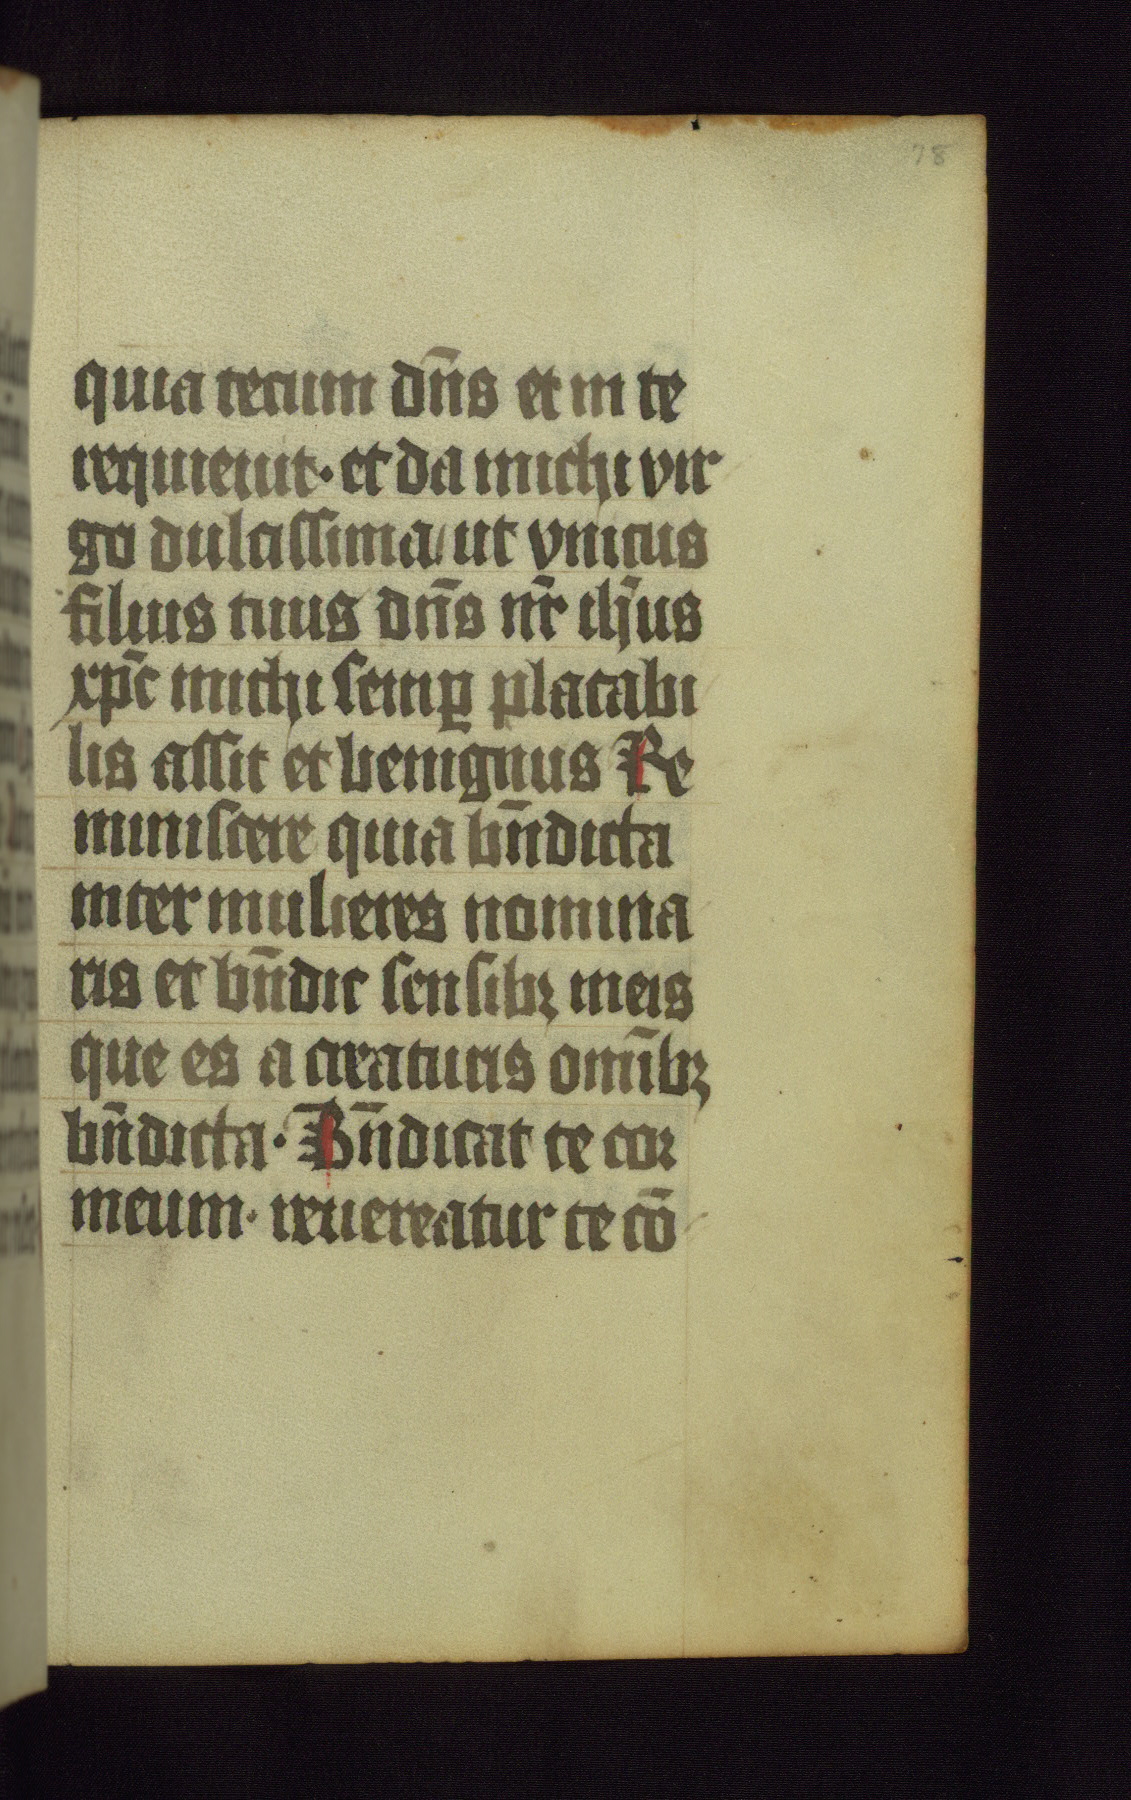 78
quia tecum dn̄s et in te
requieuit · et da michi vir
go dulcissima / ut vnicus
filius tuus dn̄s nr̄ ih̄us
xp̄c michi semꝑ placabi
lis assit et benignus Re
miniscere quia bn̄dicta
inter mulieres nomina
ris et bn̄dic sensibꝫ meis
que es a creaturis omīibꝫ
bn̄dicta · Bn̄dicat te cor
meum · reuereatur te cō